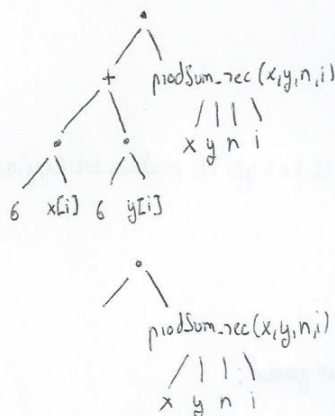 ·
+ prodSum_rec(x,y,n,i)
· · x y n i
6 x[i] 6 y[i]
·
prodSum_rec(x,y,n,i)
x y n i